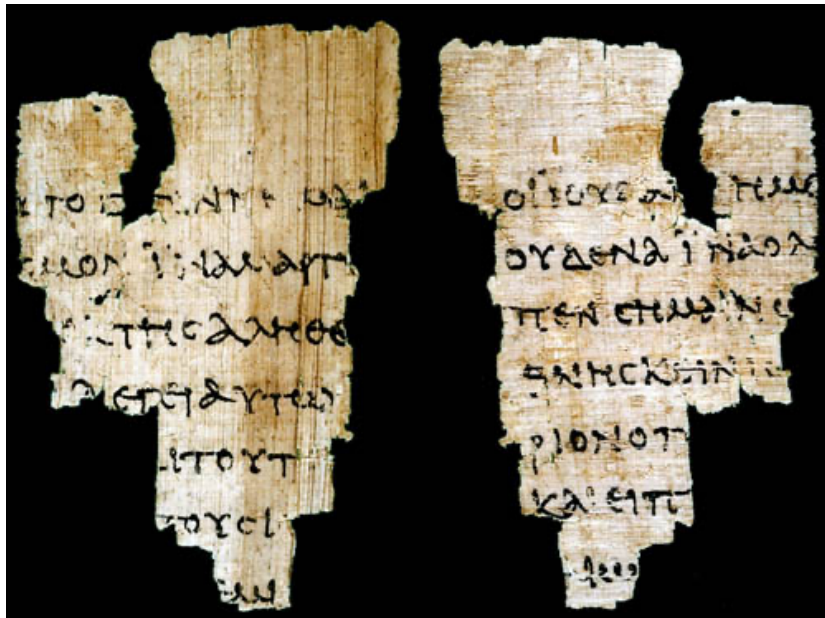 ΤΟ Γ ΕΝΝΗΜΑΙ
ϹΜΟΝ ΪΝΑ ΜΑΡΤΥ
ΤΗϹ ΑΛΗΘΕ
ΛΕΓΕΙ ΑΥΤΩ
ΙΤΟΥΤ
ΤΟΥϹ Ι
ΟΙ ΪΟΥΔΑΙ ΗΜΕ
ΟΥΔΕΝΑ ΪΝΑ Ο Λ
ΠΕΝ ϹΗΜΑΙΝΩ
ΘΝΗϹΚΕΙΝ ΙϹ
ΡΙΟΝ Ο Π
ΚΑΙ ΕΙΠ